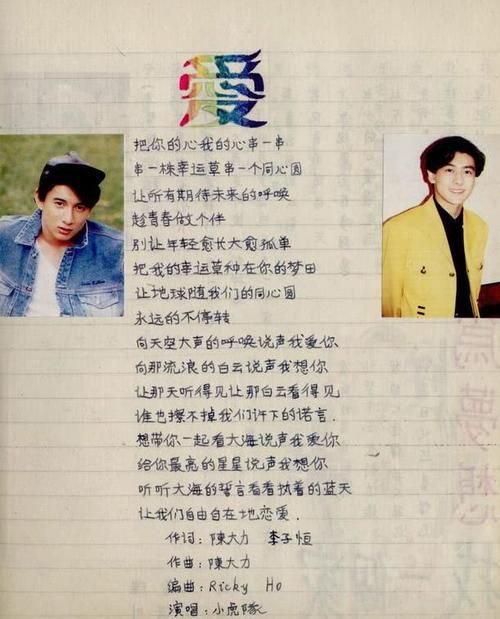 爱
把你的心我的心串一串
串一株幸运草串一个同心圆
让所有期待未来的呼唤
趁青春做个伴
别让年轻愈长大愈孤单
把我的幸运草种在你的梦田
让地球随我们的同心圆
永远的不停转
向天空大声的呼唤说声我爱你
向那流浪的白云说声我想你
让那天听得见让那白云看得见
谁也擦不掉我们许下的诺言.
想带你一起看大海说声我爱你
给你最亮的星星说声我想你
听听大海的誓言看看执着的蓝天
让我们自由自在地恋爱.
作词:陳大力 李子恒
作曲:陳大力
编曲:Ricky Ho
演唱:小虎隊